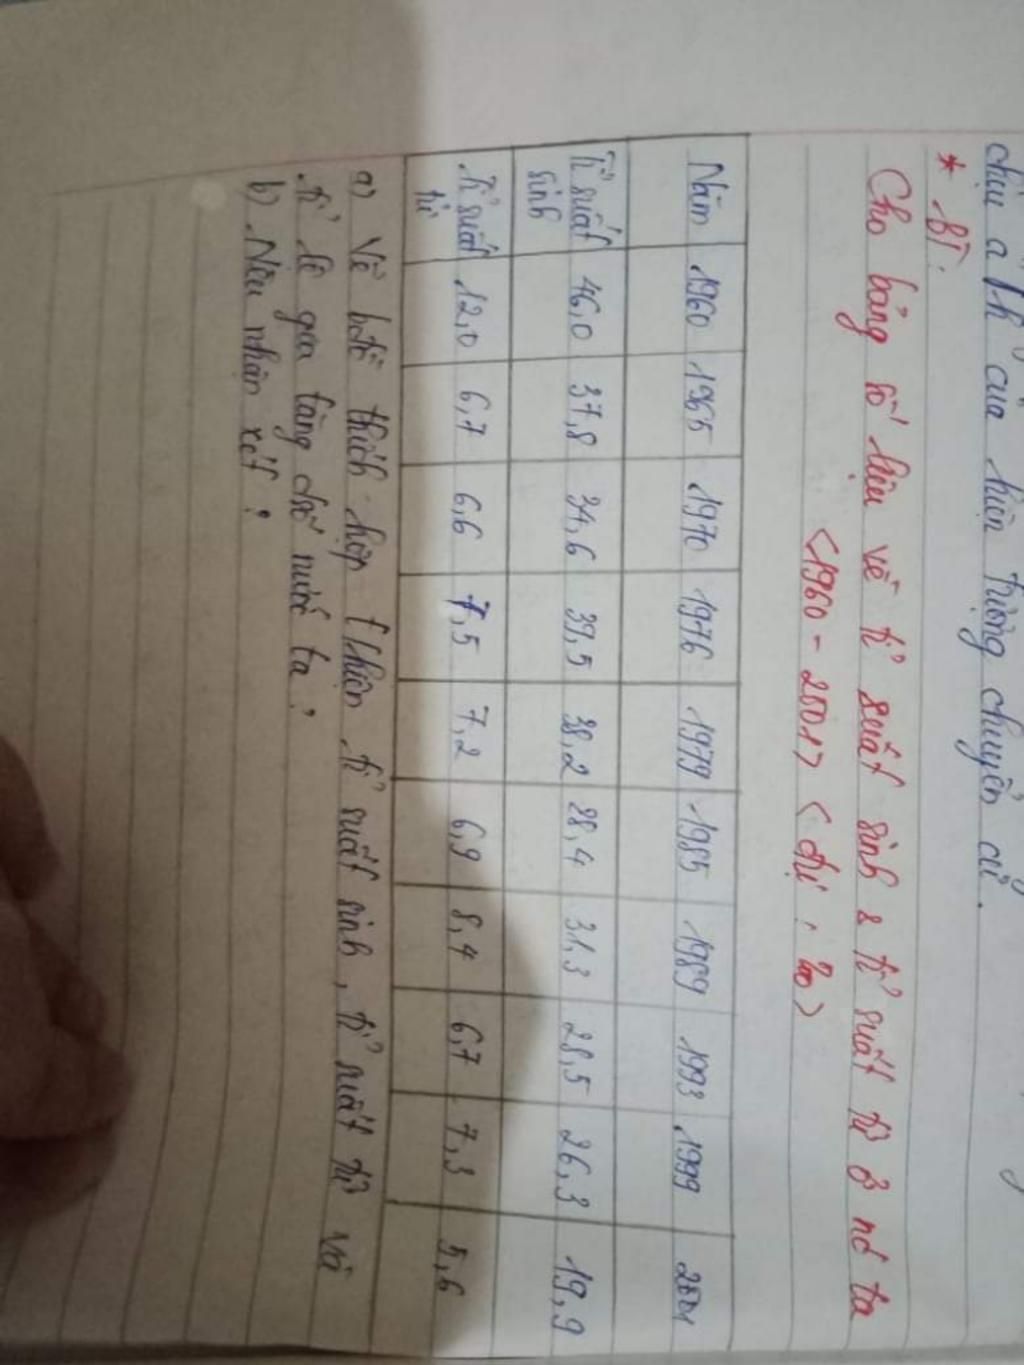 chịu a/h' của hiện tượng chuyển cư.
* BT:
Cho bảng số liệu về tỉ suất sinh & tỉ suất tử ở nc ta
<1960 - 2001> < đvị : ‰>
Năm 1960 1965 1970 1976 1979 1985 1989 1993 1999 2001
Tỉ suất sinh 46,0 37,8 34,6 39,5 38,2 28,4 31,3 28,5 26,3 19,9
Tỉ suất tử 12,0 6,7 6,6 7,5 7,2 6,9 8,4 6,7 7,3 5,6
a) Vẽ bđồ thích hợp thiện tỉ suất sinh, tỉ suất tử và
tỉ lệ gia tăng dsố nước ta?
b) Nêu nhận xét?